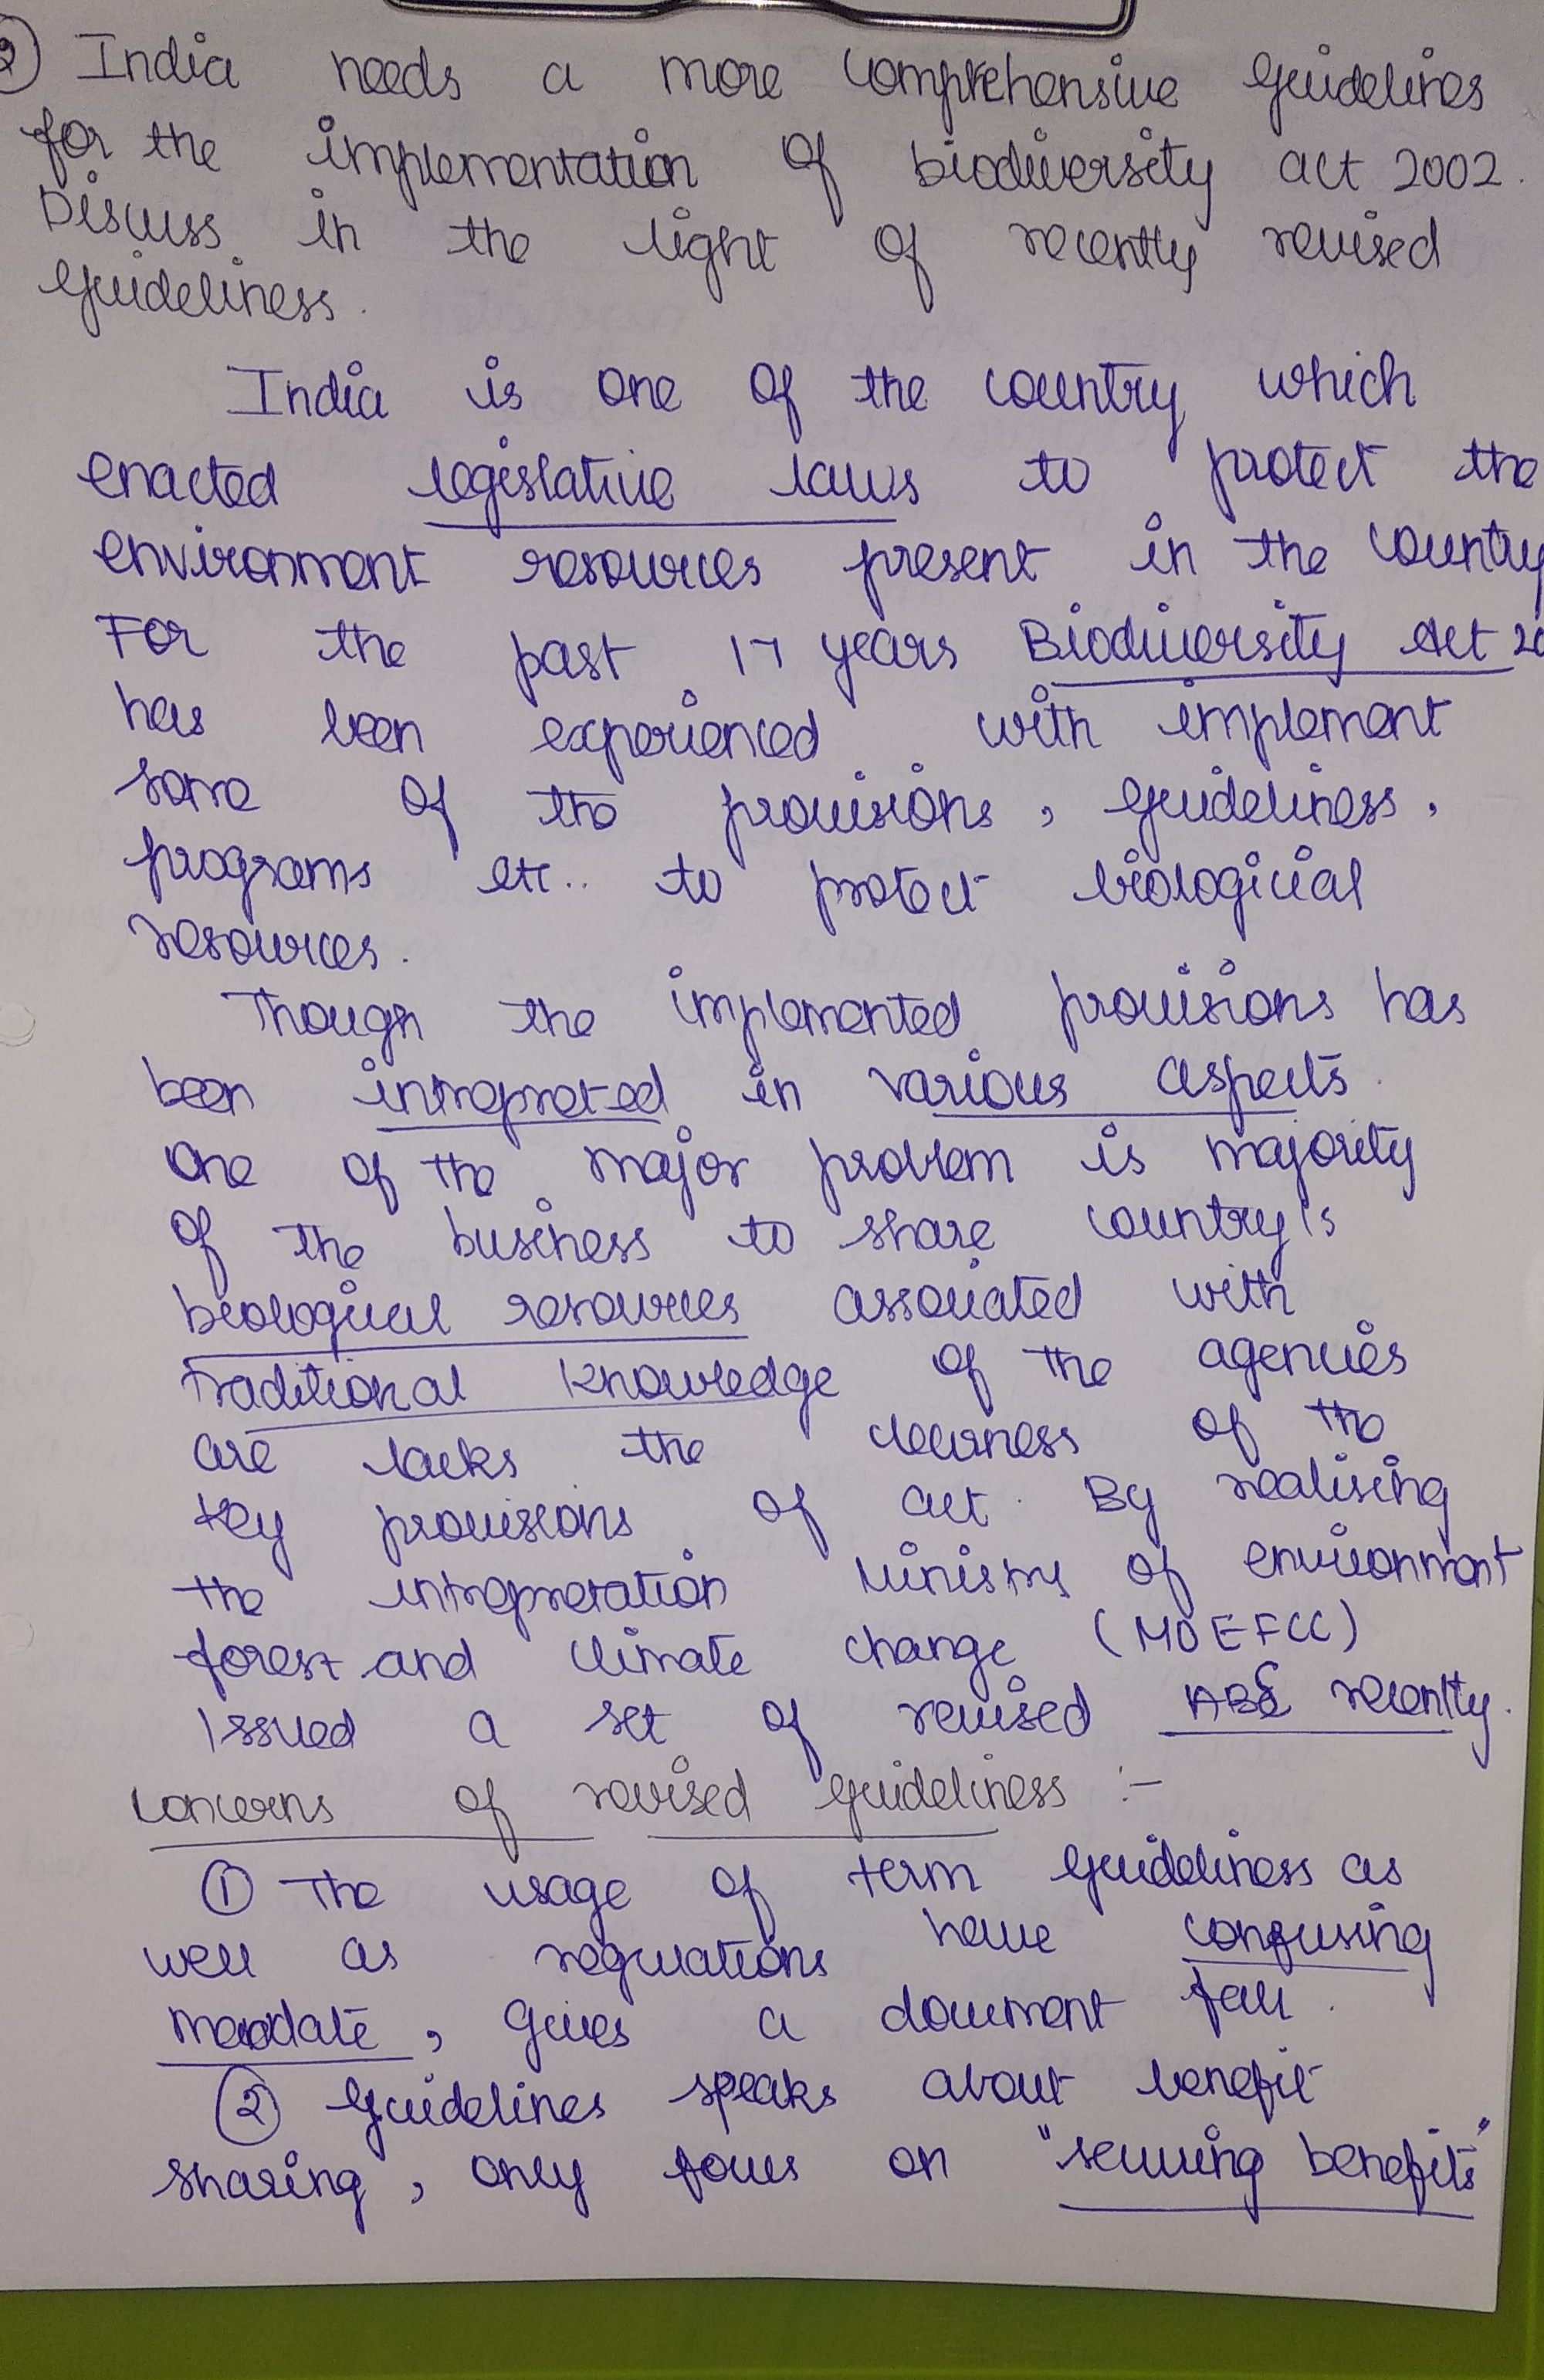 2) India needs a more comprehensive guidelines
for the implementation of biodiversity act 2002.
Discuss in the light of recently revised
guideliness.
India is one of the country which
enacted legislative laws to protect the
environment resources present in the country
For the past 17 years Biodiversity Act 20
has been experienced with implement
some of the provisions, guideliness,
programs etc.. to protect biological
resources.
Though the implemented provisions has
been intrepreted in various aspects.
One of the major problem is majority
of the business to share country's
biological resources associated with
traditional knowledge of the agencies
are lacks the clearness of the
key provisions of act. By realising
the intrepretation Ministry of environment
forest and climate change (MOEFCC)
issued a set of revised recently.
Concerns of revised guideliness :-
① The usage of term guideliness as
well as regulations have confusing
mandate, gives a document fail.
② Guidelines speaks about benefit
sharing, only focus on "securing benefits"